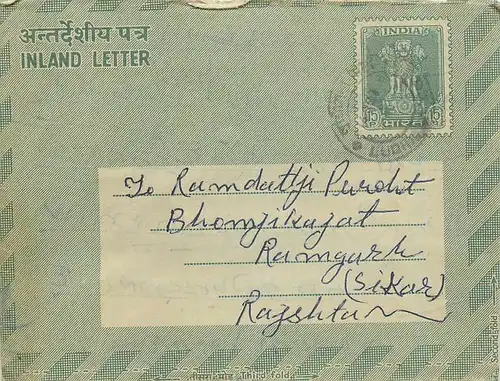 अन्तर्देशीय पत्र
INLAND LETTER
INDIA
15 15
भारत
To Ramdattji Puroht
Bhomjikajat
Ramgarh
(Sikar)
Rajshtan
Third fold